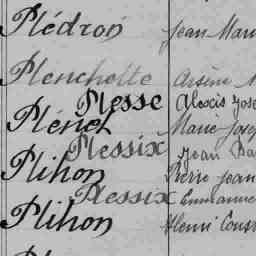 Plédron Jean Mari
Plenchotte Arsène M
Plesse Alexis Jose
Plénet Marie Josep
Plessix Jean Ba
Plihon Pierre Jean
Plessix Emmanue
Plihon Henri Const